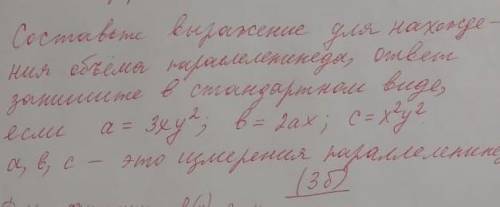 Составьте выражение для нахожде-
ния объёма параллелепипеда, ответ
запишите в стандартном виде,
если a = 3xy²; b = 2ax; c = x²y²
a, b, c – это измерения параллелепипе
(3б)